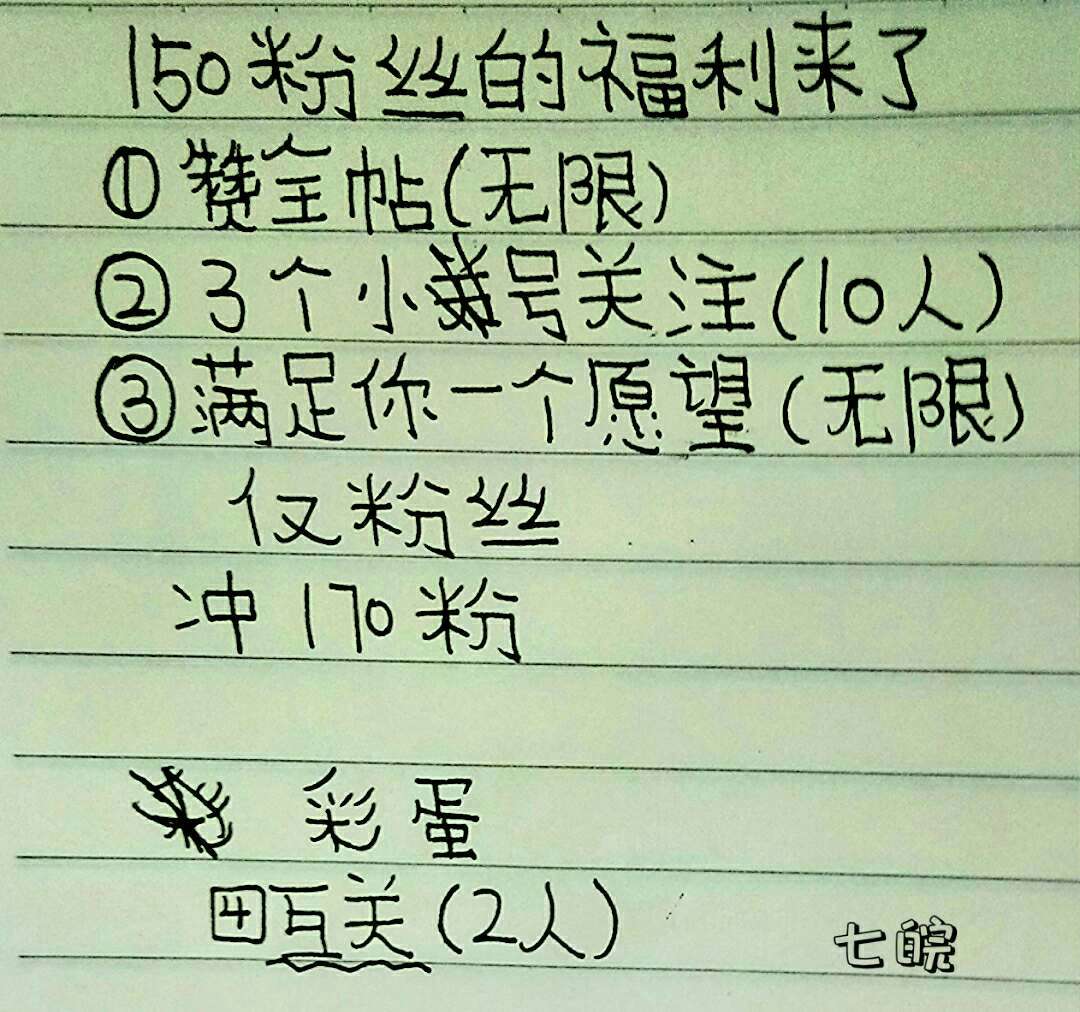 150粉丝的福利来了
①赞全帖(无限)
②3个小号关注(10人)
③满足你一个愿望(无限)
仅粉丝
冲170粉
彩蛋
4互关(2人)
七皖